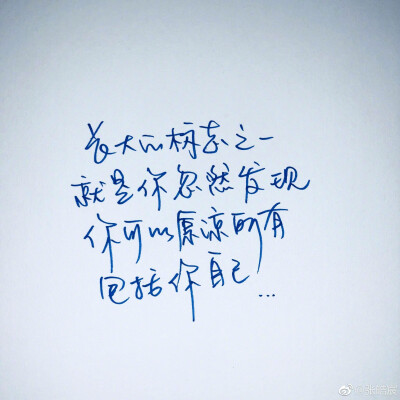 长大的标志之一
就是你忽然发现
你可以原谅所有
包括你自己...